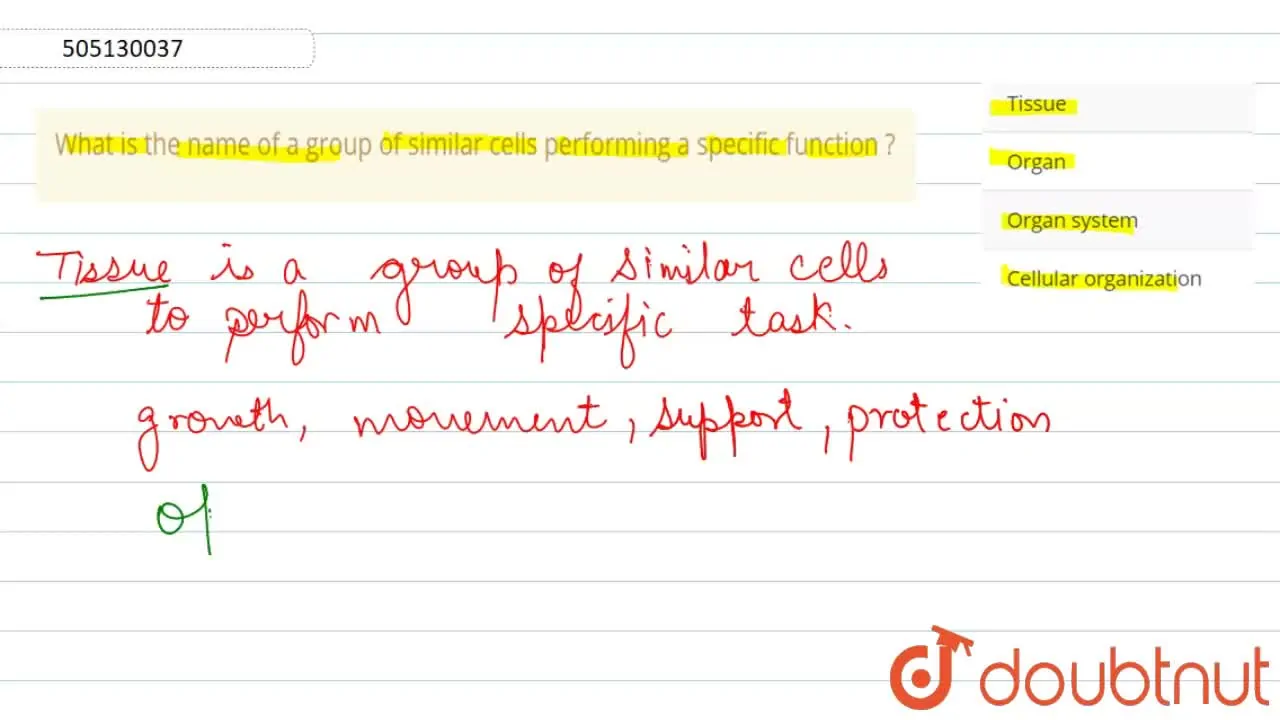 505130037
What is the name of a group of similar cells performing a specific function ?
Tissue
Organ
Organ system
Cellular organization
Tissue is a group of similar cells
to perform specific task.
growth, movement, support, protection
Of
doubtnut